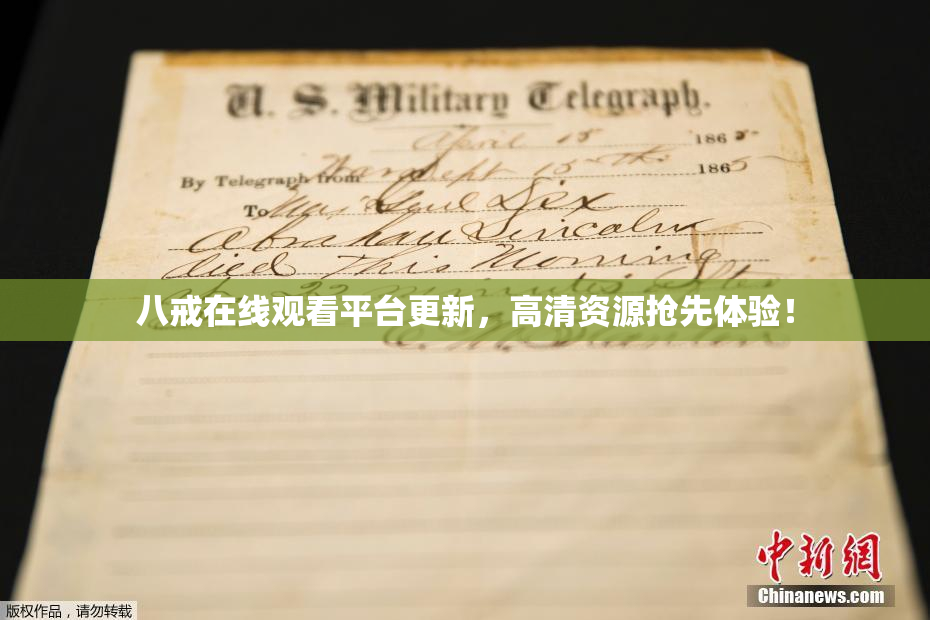 U. S. Military Telegraph.
April 15 1865
By Telegraph from War Dept 15th 1865
To Maj Genl Dix
Abraham Lincoln
died This Morning
at 22 minutes after
八戒在线观看平台更新，高清资源抢先体验！
E. M. Stanton
中新网
Chinanews.com
版权作品，请勿转载